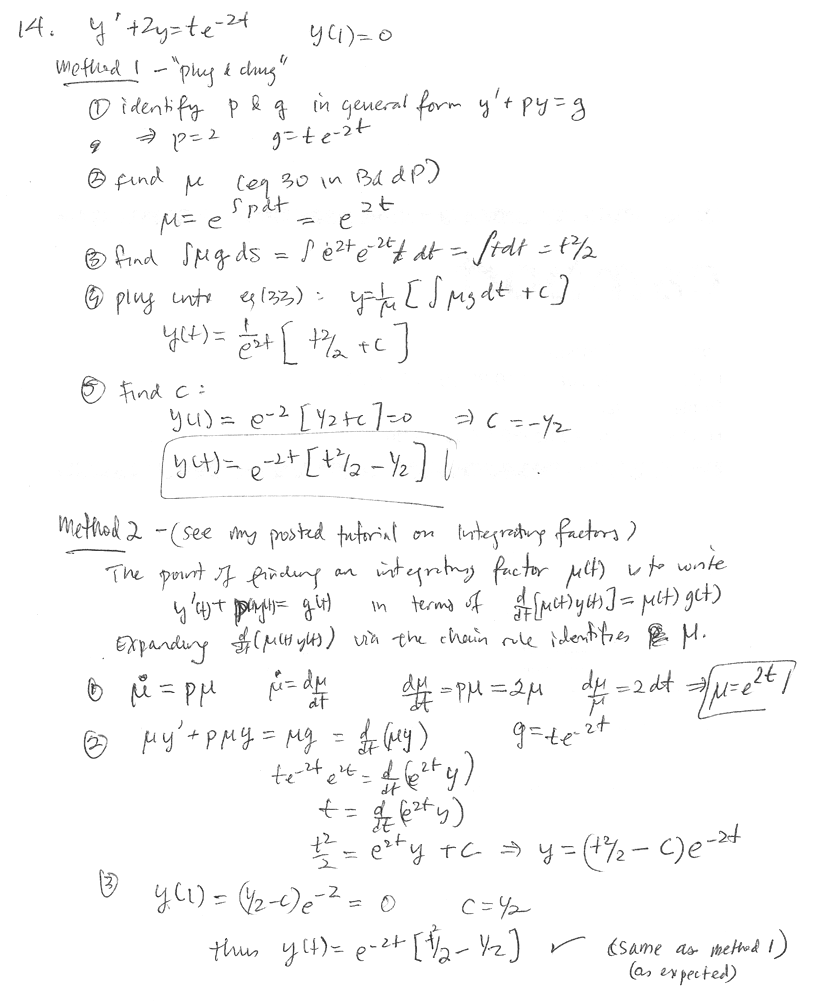 14. y' + 2y = te^{-2t}    y(1) = 0
Method 1 - "plug & chug"
① identify p & g in general form y' + py = g
⇒ p = 2    g = te^{-2t}
② find μ (eq 30 in Bd dP)
μ = e^{∫pdt} = e^{2t}
③ find ∫μg ds = ∫e^{2t}e^{-2t}t dt = ∫tdt = t²/2
④ plug into eq(33): y = 1/μ [∫μgdt + c]
y(t) = 1/e^{2t} [t²/2 + c]
⑤ Find c:
y(1) = e^{-2} [1/2 + c] = 0    ⇒ c = -1/2
y(t) = e^{-2t} [t²/2 - 1/2]
Method 2 - (see my posted tutorial on Integrating factors)
The point of finding an integrating factor μ(t) is to write
y'(t) + p(t)y(t) = g(t) in terms of d/dt[μ(t)y(t)] = μ(t)g(t)
Expanding d/dt(μ(t)y(t)) via the chain rule identifies μ.
① μ̇ = pμ    μ̇ = dμ/dt    dμ/dt = pμ = 2μ    dμ/μ = 2dt ⇒ μ = e^{2t}
② μy' + pμy = μg = d/dt(μy)    g = te^{-2t}
te^{-2t}e^{2t} = d/dt(e^{2t}y)
t = d/dt(e^{2t}y)
t²/2 = e^{2t}y + c ⇒ y = (t²/2 - c)e^{-2t}
③ y(1) = (1/2 - c)e^{-2} = 0    c = 1/2
thus y(t) = e^{-2t} [t²/2 - 1/2] ✓ (same as method 1)
(as expected)